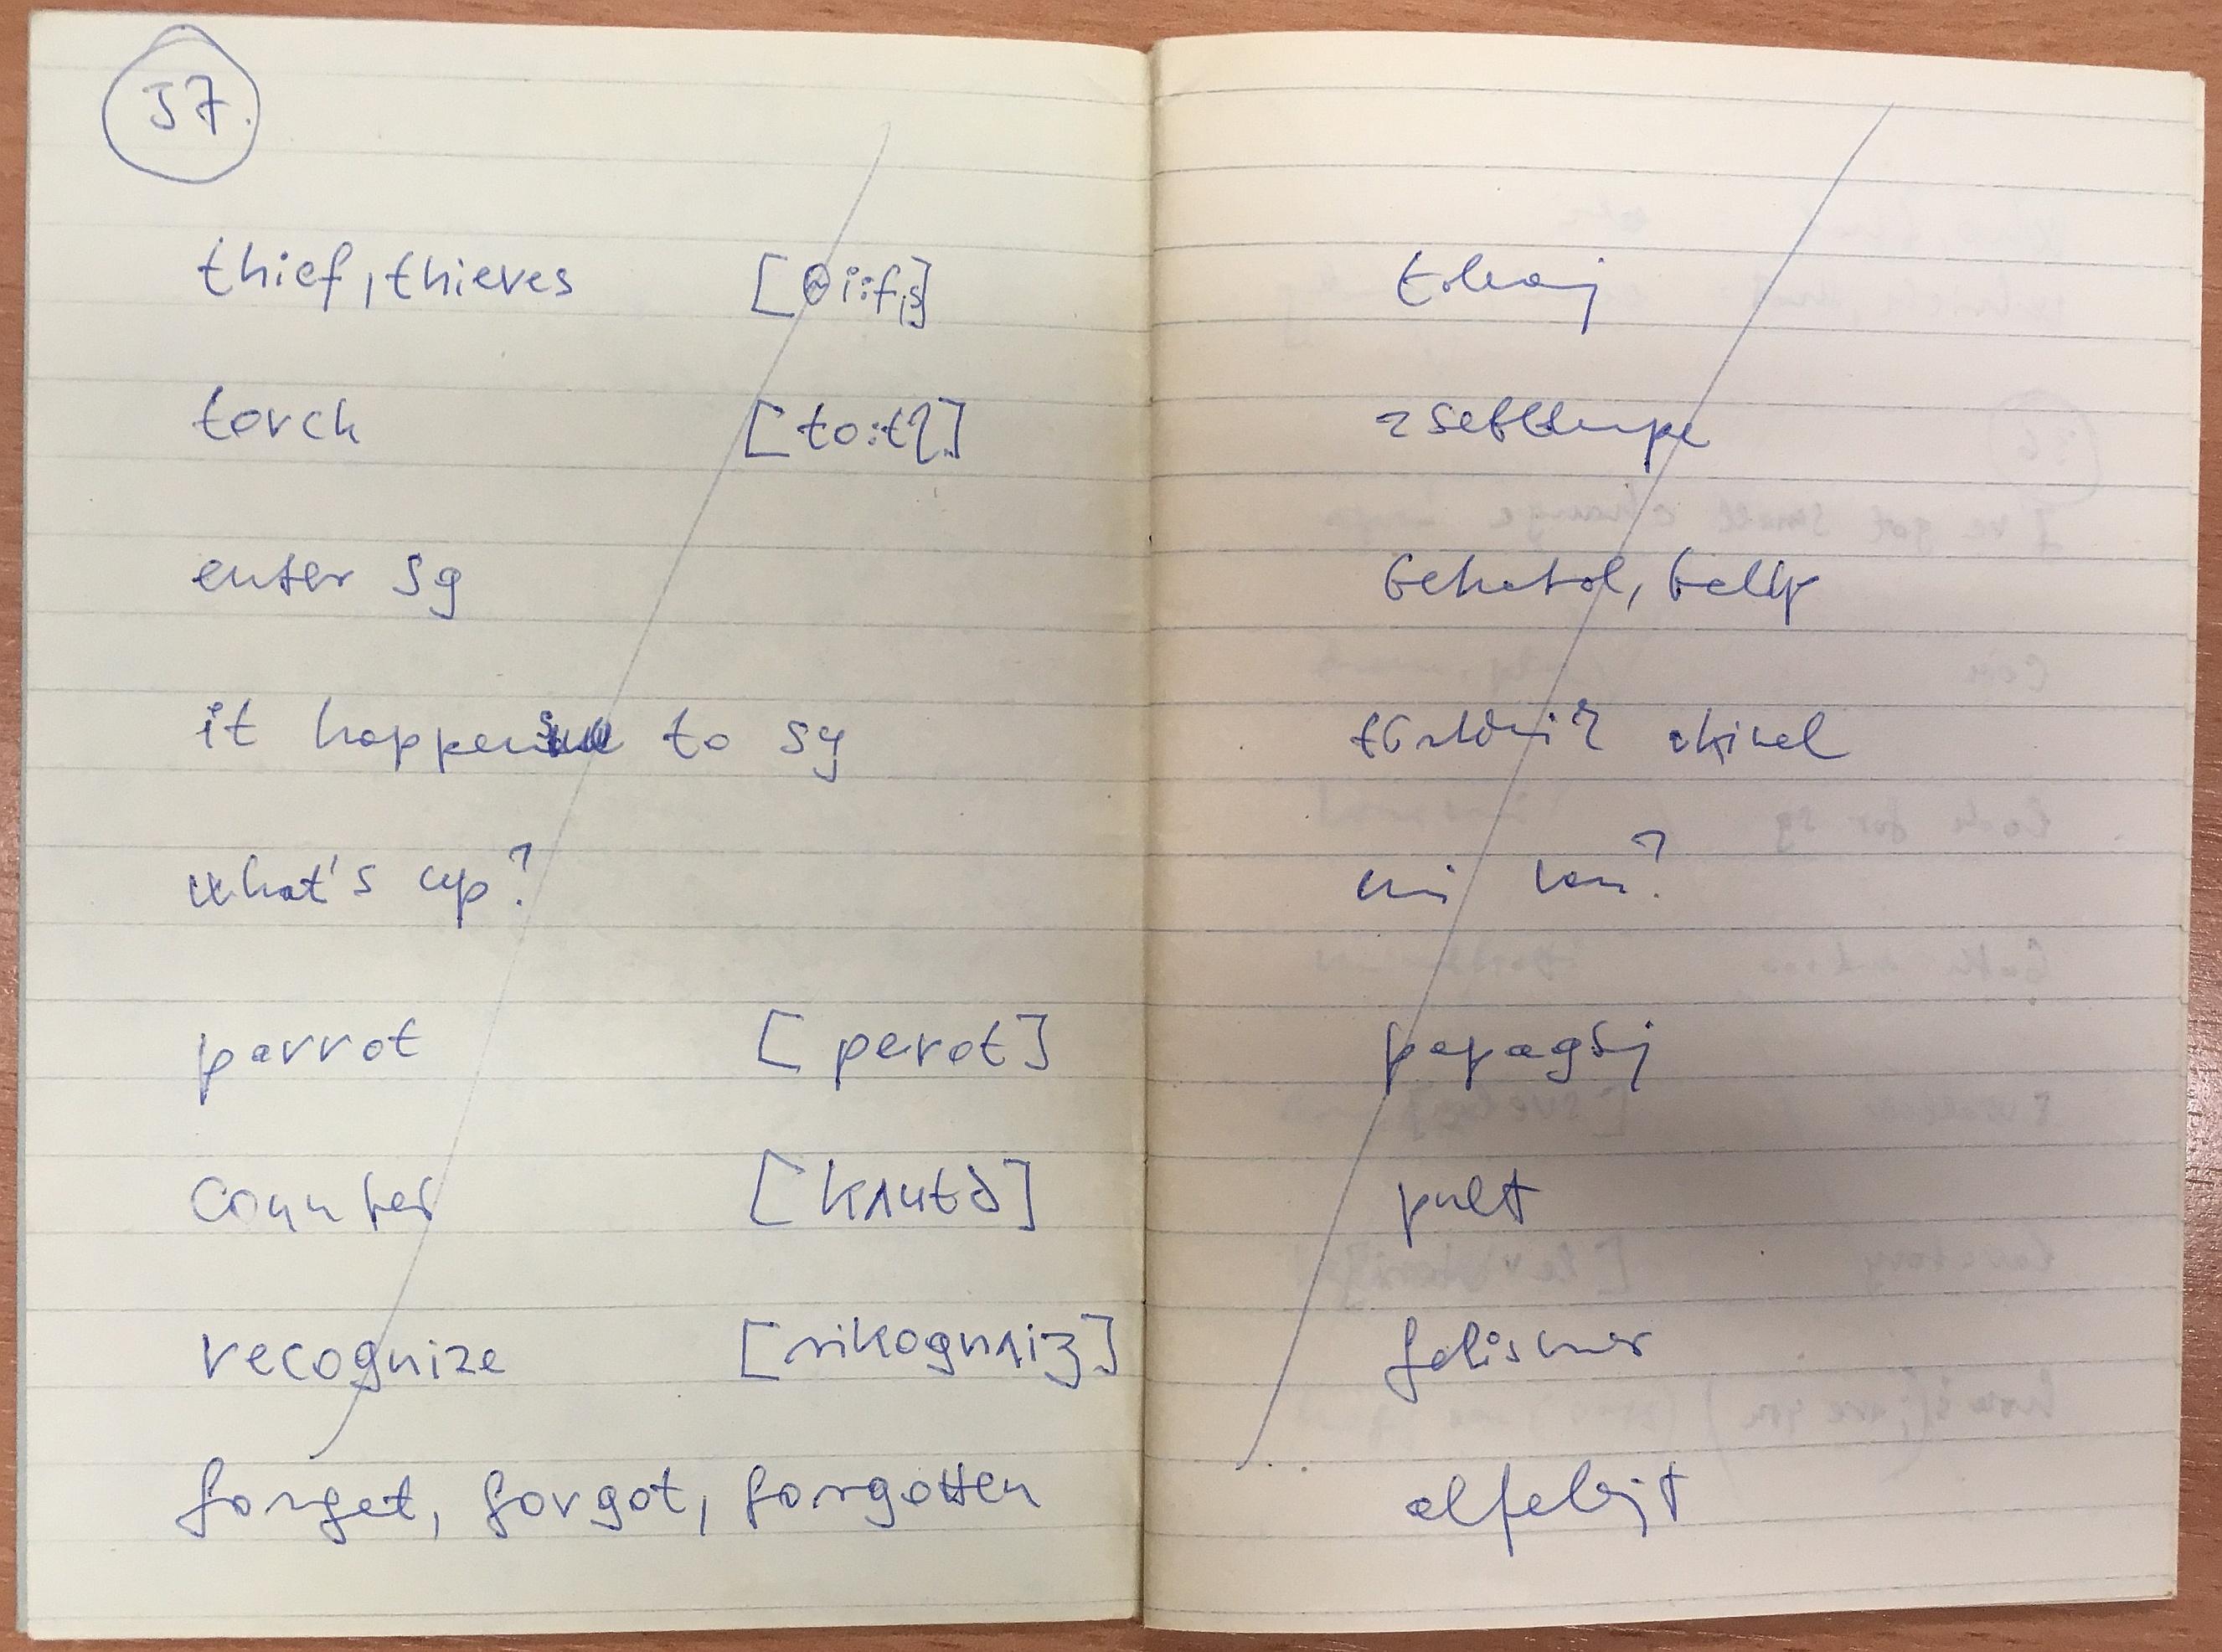 37.
thief, thieves [θi:f,s] tolvaj
torch [to:tʃ] zseblámpa
enter sg behatol, belép
it happens to sg történik vkivel
what's up? mi van?
parrot [perot] papagáj
counter [kʌutə] pult
recognize [rikognʌiz] felismer
forget, forgot, forgotten elfelejt